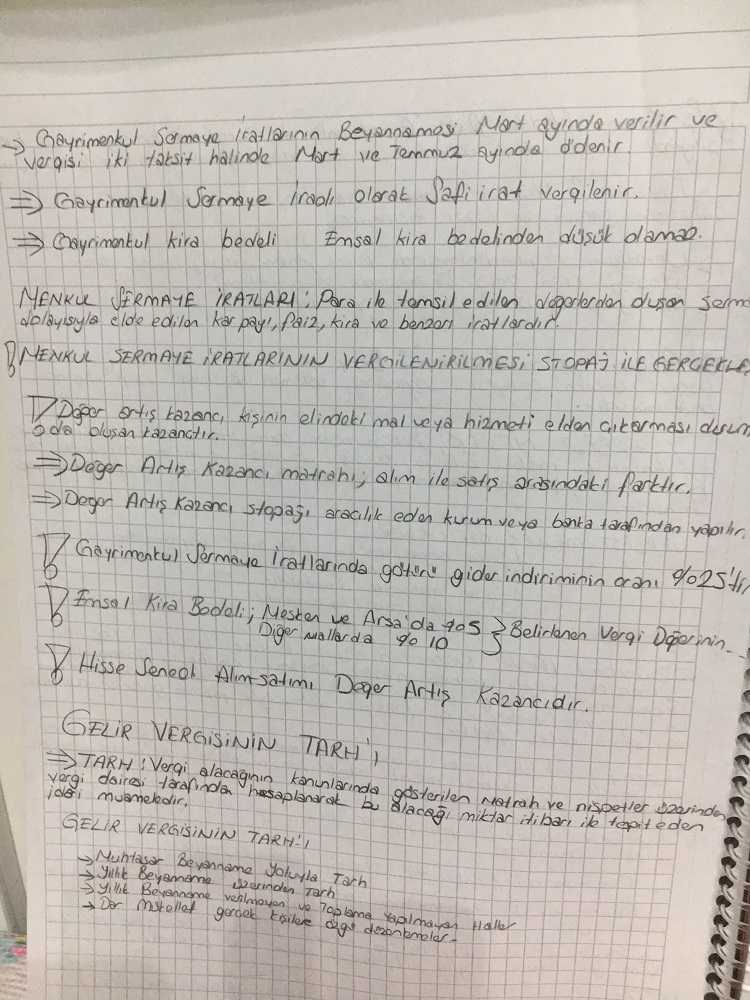 → Gayrimenkul Sermaye İratlarının Beyannamesi Mart ayında verilir ve
vergisi iki taksit halinde Mart ve Temmuz ayında ödenir
⇒ Gayrimenkul Sermaye İradı olarak Safi irat vergilenir.
⇒ Gayrimenkul kira bedeli Emsal kira bedelinden düşük olamaz.
MENKUL SERMAYE İRATLARI : Para ile temsil edilen değerlerden oluşan serma
dolayısıyla elde edilen kar payı, faiz, kira ve benzeri iratlardır.
! MENKUL SERMAYE İRATLARININ VERGİLENİRİLMESİ STOPAJ İLE GERÇEKLE
! Değer artış kazancı kişinin elindeki mal veya hizmeti elden çıkarması durum
oda oluşan kazançtır.
⇒ Değer Artış Kazancı matrahı; alım ile satış arasındaki farktır.
⇒ Değer Artış Kazancı stopağı aracılık eden kurum veya banka tarafından yapılır.
! Gayrimenkul Sermaye İratlarında götürü gider indiriminin oranı %25'tir
! Emsal Kira Bedeli; Mesken ve Arsa'da %5 } Belirlenen Vergi Değerinin...
Diğer Mallarda %10
! Hisse Senedi Alım-satımı Değer Artış Kazancıdır.
GELİR VERGİSİNİN TARH'I
⇒ TARH : Vergi alacağının kanunlarında gösterilen Matrah ve nispetler üzerinden
vergi dairesi tarafından hesaplanarak bu alacağı miktar itibari ile tespit eden
idari muameledir.
GELİR VERGİSİNİN TARH'I
→ Muhtasar Beyanname Yoluyla Tarh
→ Yıllık Beyanname üzerinden Tarh
→ Yıllık Beyanname verilmeyen ve Toplama Yapılmayan Haller
→ Dar Mükellef gerçek kişilere özgü düzenlemeler.